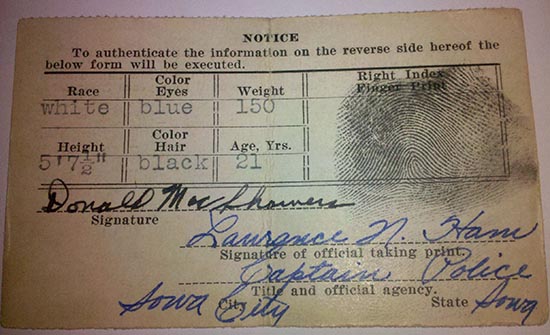 NOTICE
To authenticate the information on the reverse side hereof the
below form will be executed.
Race Color Eyes Weight Right Index Finger Print
white blue 150
Height Color Hair Age, Yrs.
5'7½" black 21
Donald Mac Showers
Signature
Lawrence N Ham
Signature of official taking print.
Captain Police
Title and official agency.
Iowa City Iowa
City State